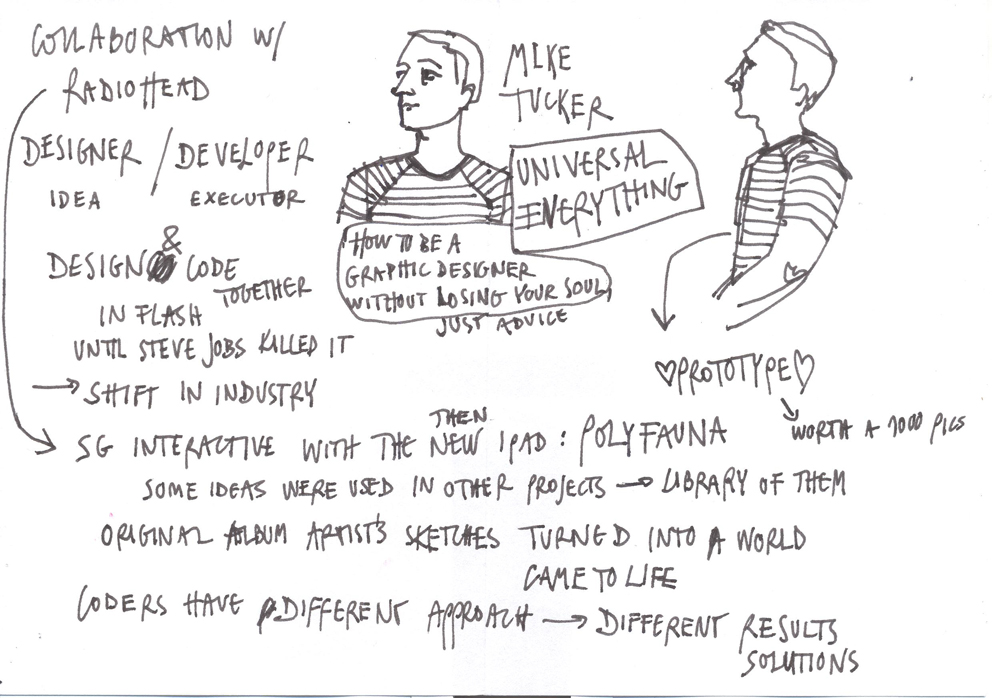 COLLABORATION W/
RADIOHEAD
MIKE
TUCKER
DESIGNER / DEVELOPER
IDEA EXECUTOR
UNIVERSAL
EVERYTHING
HOW TO BE A
GRAPHIC DESIGNER
WITHOUT LOSING YOUR SOUL
JUST ADVICE
DESIGN & CODE
TOGETHER
IN FLASH
UNTIL STEVE JOBS KILLED IT
→ SHIFT IN INDUSTRY
♡PROTOTYPE♡
WORTH A 1000 PICS
THEN
SG INTERACTIVE WITH THE NEW IPAD: POLYFAUNA
SOME IDEAS WERE USED IN OTHER PROJECTS → LIBRARY OF THEM
ORIGINAL ALBUM ARTIST'S SKETCHES TURNED INTO A WORLD
CAME TO LIFE
CODERS HAVE DIFFERENT APPROACH → DIFFERENT RESULTS
SOLUTIONS